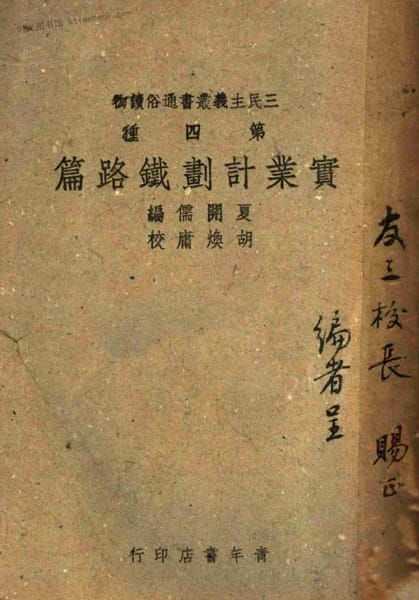 三民主義叢書通俗讀物
第四種
實業計劃鐵路篇
夏開儒編
胡煥庸校
青年書店印行
友三校長 賜正
編者呈